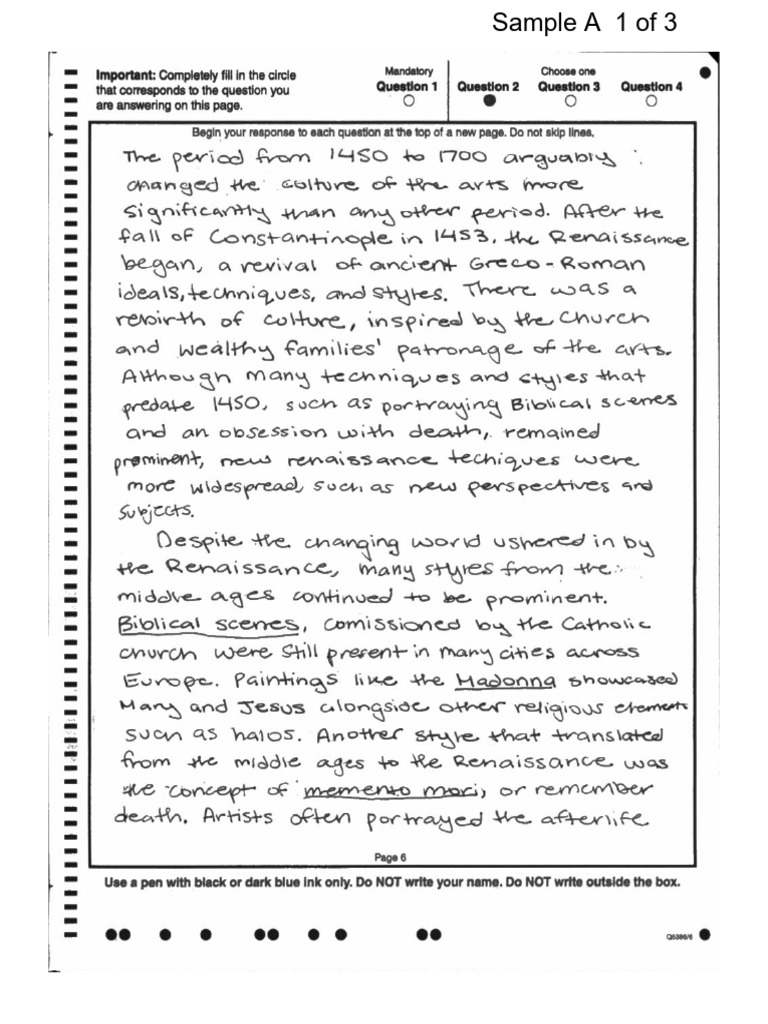 Sample A 1 of 3
Important: Completely fill in the circle
that corresponds to the question you
are answering on this page.
Mandatory
Question 1
Choose one
Question 2 Question 3 Question 4
Begin your response to each question at the top of a new page. Do not skip lines.
The period from 1450 to 1700 arguably
changed the culture of the arts more
significantly than any other period. After the
fall of Constantinople in 1453, the Renaissance
began, a revival of ancient Greco-Roman
ideals, techniques, and styles. There was a
rebirth of culture, inspired by the Church
and wealthy families' patronage of the arts.
Although many techniques and styles that
predate 1450, such as portraying Biblical scenes
and an obsession with death, remained
prominent, new renaissance techiques were
more widespread, such as new perspectives and
subjects.
Despite the changing world ushered in by
the Renaissance, many styles from the
middle ages continued to be prominent.
Biblical scenes, comissioned by the Catholic
church were still present in many cities across
Europe. Paintings like the Madonna showcased
Mary and Jesus alongside other religious elements
such as halos. Another style that translated
from the middle ages to the Renaissance was
the concept of memento mori, or remember
death. Artists often portrayed the afterlife
Page 6
Use a pen with black or dark blue ink only. Do NOT write your name. Do NOT write outside the box.
Q5386/6